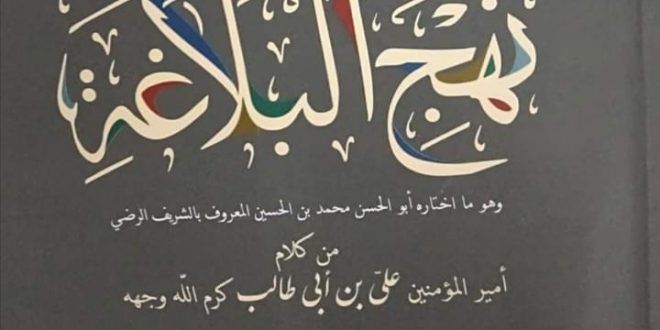 نهج البلاغة
وهو ما اختاره أبو الحسن محمد بن الحسين المعروف بالشريف الرضي
من كلام
أمير المؤمنين علي بن أبي طالب كرم الله وجهه